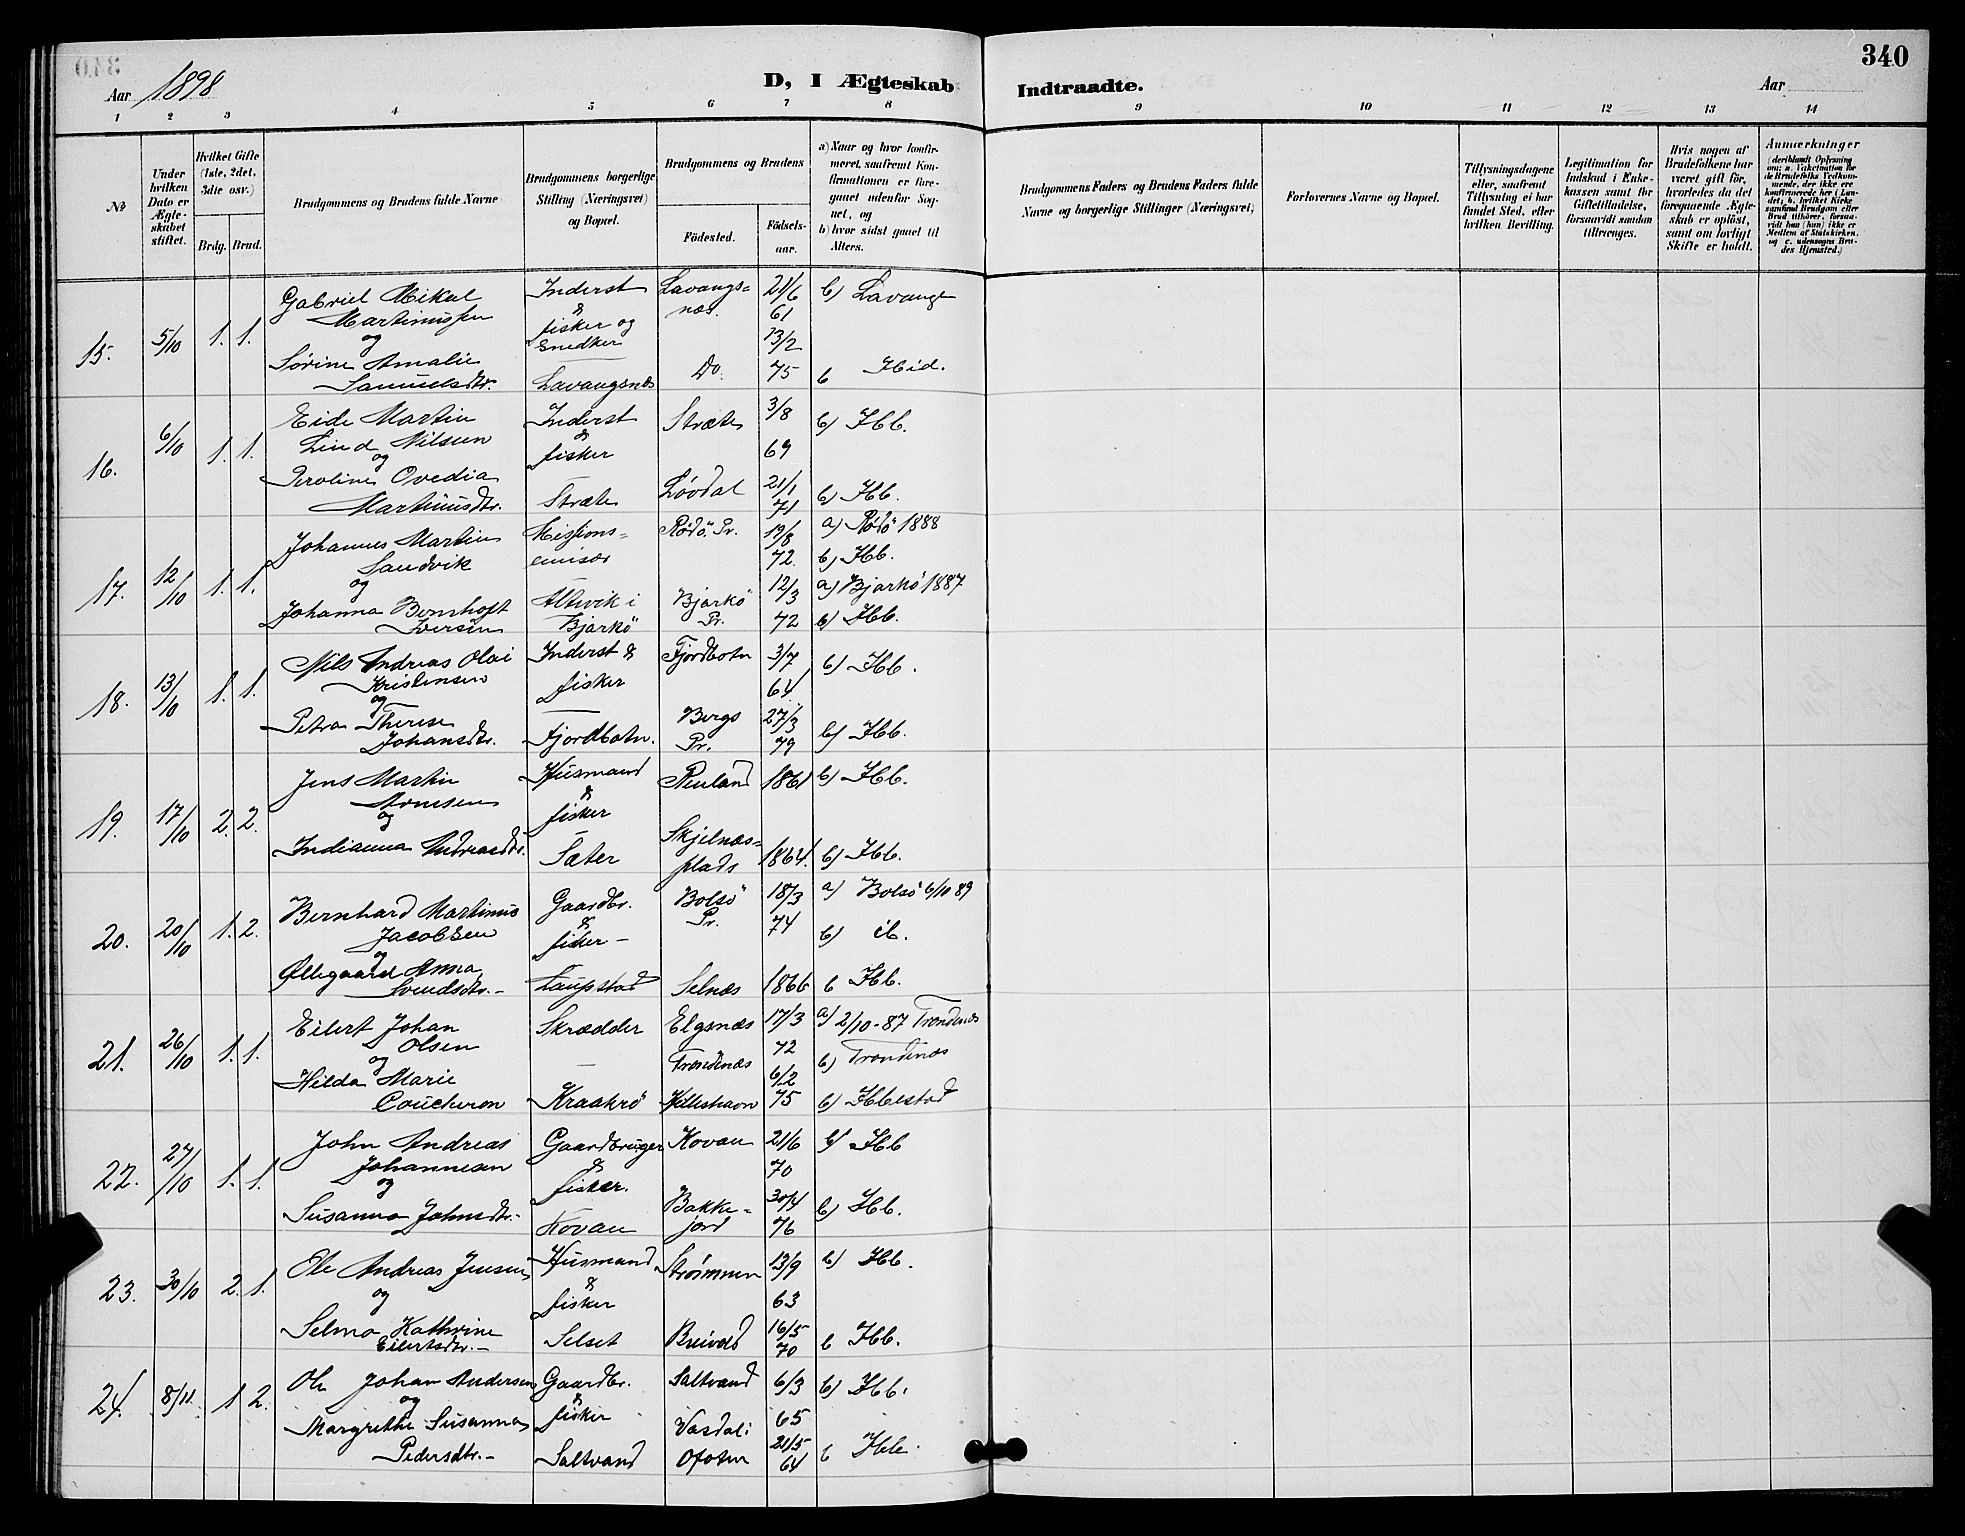 340
Aar 1898
D, I Ægteskab Indtraadte.
Aar
1 2 3 4 5 6 7 8 9 10 11 12 13 14
№
Under hvilken Dato er Ægteskabet stiftet.
Hvilket Gifte (1ste, 2det, 3die osv.)
Brdg. Brud.
Brudgommens og Brudens fulde Navne
Brudgommens borgerlige Stilling (Næringsvei) og Bopæl.
Brudgommens og Brudens
Fødested.
Fødselsaar.
a) Naar og hvor konfirmeret, saafremt Konfirmationen er foregaaet udenfor Sognet, og
b) hvor sidst gaaet til Alters.
Brudgommens Faders og Brudens Faders fulde Navne og borgerlige Stillinger (Næringsvei)
Forlovernes Navne og Bopæl.
Tillysningsdagene eller, saafremt Tillysning ei har fundet Sted, efter hvilken Bevilling.
Legitimation for Indskud i Enkekassen samt for Giftetilladelse, forsaavidt saadan tiltrænges.
Hvis nogen af Brudefolkene har været gift før, hvorledes da det foregaaende Ægteskab er opløst, samt om lovligt Skifte er holdt.
Anmærkninger
(deriblandt Oplysning om: a. Vakcination for de Brudefolks Vedkommende, der ikke ere konfirmerede her i Landet, b. hvilket Kirkesamfund Brudgom eller Brud tilhører, forsaavidt han (hun) ikke er Medlem af Statskirken, og c. udensogns Brudes Hjemsted.)
15. 5/10 1. 1.
Gabriel Mikal Martinussen
og
Sørine Amalie Samuelsdtr.
Inderst & fisker og Snedker
Lavangsnæs
Lavangsnæs. 21/6 61 b) Lavange
Do. 13/2 75 b Ibid.
16. 6/10 1. 1.
Eide Martin Lind Nilsen
og
Peroline Ovedia Martinusdtr.
Inderst & fisker
Stræte
Stræte 3/8 69 b) Ibb.
Løvdal 21/1 71 b) Ibb.
17. 12/10 1. 1.
Johannes Martin Sandvik
og
Johanna Bernhoft Iversen
Missionsemisær
Altevik i Bjarkö
Rödö Pr. 19/8 72. a) Rödö 1888 b) Ibb.
Bjarkö Pr. 12/3 72 a) Bjarkö 1887 b) Ibb.
18. 13/10 1. 1.
Nils Andreas Olai Kristensen
og
Petra Therese Johansdtr.
Inderst & fisker
Fjordbotn.
Fjordbotn 3/7 64 b) Ibb.
Bergs Pr. 27/3 79 b) Ibb.
19. 17/10 2. 2.
Jens Martin Arnesen
og
Indianna Andreasdtr.
Husmand & fisker
Sæter
Renland 1861 b) Ibb.
Skjelnæsplads 1864. b) Ibb.
20. 20/10 1. 2.
Bernhard Martinus Jacobsen
og
Øllegaard Anna Svendsdtr. –
Gaardbr. & fisker –
Laupstad
Bolsö Pr. 18/3 74 a) Bolsö 6/10 89 b) ib.
Selnæs 1866 b Ibb.
21. 26/10 1. 1.
Eilert Johan Olsen
og
Hilda Marie Coucheron
Skrædder
–
Kraakrö
Elgsnæs Trondenæs 17/3 72 a) 2/10-87 Trondenæs b) Trondenæs
Hilleshavn 6/2 75 b) Ibbestad
22. 27/10 1. 1.
John Andreas Johannesen
og
Susanna Johnsdtr.
Gaardbruger & fisker.
Kovau
Kovau 21/6 70 b) Ibb
Bakkejord 30/4 76 b) Ibb.
23. 30/10 2. 1.
Ole Andreas Jensen
og
Selma Kathrine Eilertsdtr. –
Husmand & fisker
Selset
Strömmen 13/9 63 b) Ibb.
Breivold 16/5 70 b Ibb.
24. 8/11 1 2.
Ole Johan Andersen
og
Margrethe Susanna Pedersdtr. –
Gaardbr. & fisker
Saltvand
Saltvand 6/3 65 b) Ibb.
Vasdal i Ofoten 21/5 64 b Ibb.